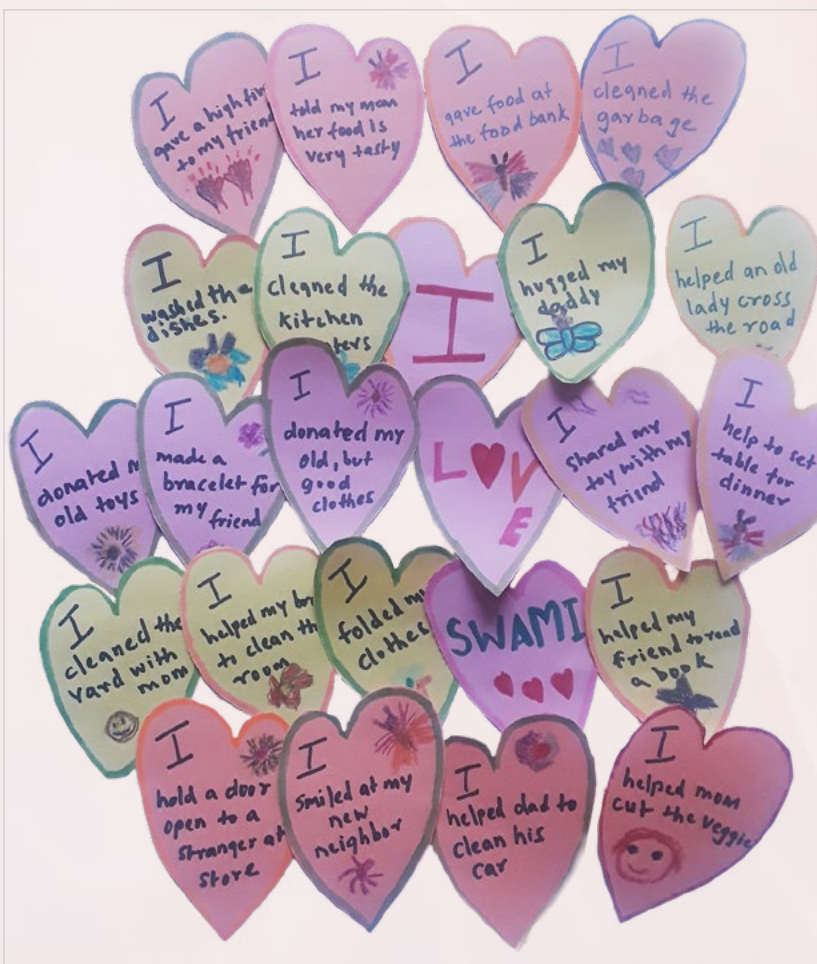 I
gave a high five
to my friend
I
told my mom
her food is
very tasty
I
gave food at
the food bank
I
cleaned the
garbage
I
washed the
dishes.
I
cleaned the
kitchen
ters
I
I
hugged my
daddy
I
helped an old
lady cross
the road
I
donated
old toys
I
made a
bracelet for
my friend
I
donated my
old, but
good
clothes
LOV
E
I
shared my
toy with my
friend
I
help to set
table for
dinner
I
cleaned the
yard with
mom
I
helped my
to clean th
room
I
folded my
clothes
SWAMI
I
helped my
friend to read
a book
I
hold a door
open to a
stranger at
store
I
smiled at my
new
neighbor
I
helped dad to
clean his
car
I
helped mom
cut the veggie